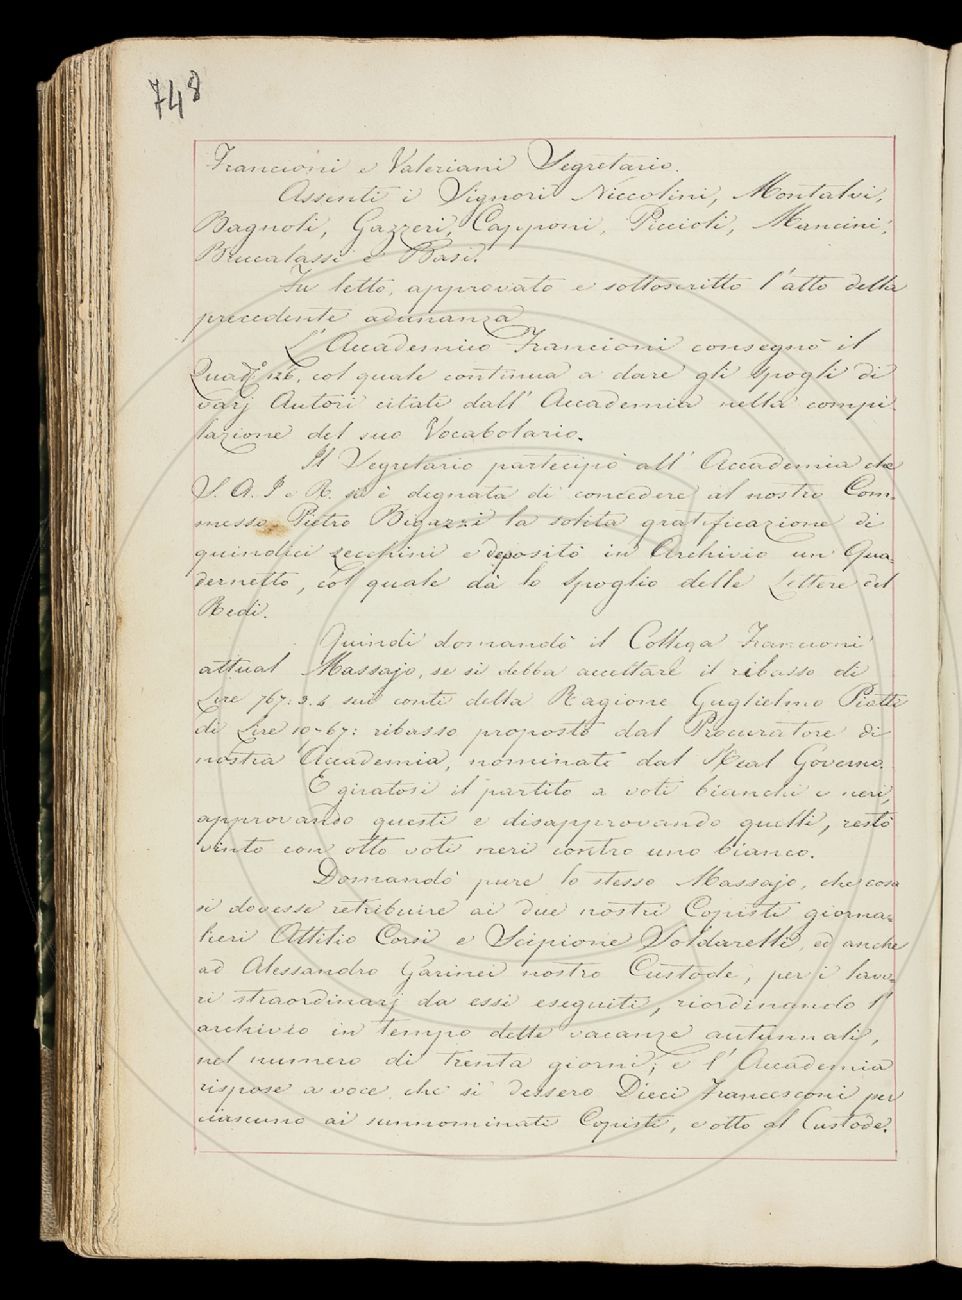 748
Francioni e Valeriani Segretario.
Assenti i Signori Niccolini, Montalvi,
Bagnoli, Gazzeri, Capponi, Piccioli, Mancini,
Brucalassi e Basi.
Fu letto, approvato e sottoscritto l'atto della
precedente adunanza
L'Accademico Francioni consegnò il
Quadº 126, col quale continua a dare gli spogli di
varj Autori citati dall'Accademia nella compi-
lazione del suo Vocabolario.
Il Segretario partecipò all'Accademia che
S. A. I e R. si è degnata di concedere al nostro Com-
messo Pietro Bigazzi la solita gratificazione di
quindici zecchini e depositò in Archivio un Qua-
dernetto, col quale dà lo spoglio delle Lettere del
Redi.
Quindi domandò il Collega Francioni
attual Massajo, se si debba accettare il ribasso di
Lire 767:3.4 sui conti della Ragione Guglielmo Piatti
di Lire 10-67: ribasso proposto dal Procuratore di
nostra Accademia, nominato dal Real Governo.
E giratosi il partito a voti bianchi e neri,
approvando questi e disapprovando quelli, restò
vinto con otto voti neri contro uno bianco.
Domandò pure lo stesso Massajo, che cosa
si dovesse retribuire ai due nostri Copisti giorna-
lieri Attilio Corsi e Scipione Soldarelli, ed anche
ad Alessandro Garinei nostro Custode, per i lavo-
ri straordinarj da essi eseguiti, riordinando l'
archivio in tempo delle vacanze autunnali,
nel numero di trenta giorni; e l'Accademia
rispose a voce che si dessero Dieci Francesconi per
ciascuno ai sunnominati Copisti, e otto al Custode.